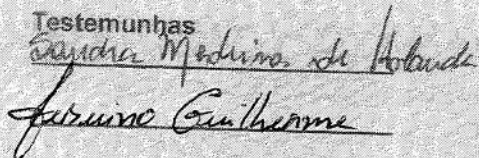 Testemunhas
Sandra Medeiros de Holanda
Guilherme